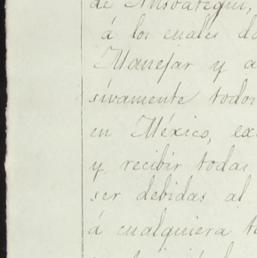 de Ansoategui,
á los cuales
Manejar y a
sivamente todos
en México, ex
y recibir todas
ser debidas al
á cualquiera